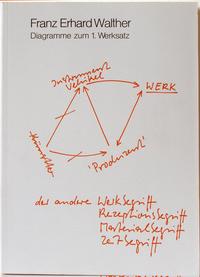 Franz Erhard Walther
Diagramme zum 1. Werksatz
Instrument
Vehikel
WERK
Künstler
'Produzent'
der andere Werkbegriff
Rezeptionsbegriff
Materialbegriff
Zeitbegriff